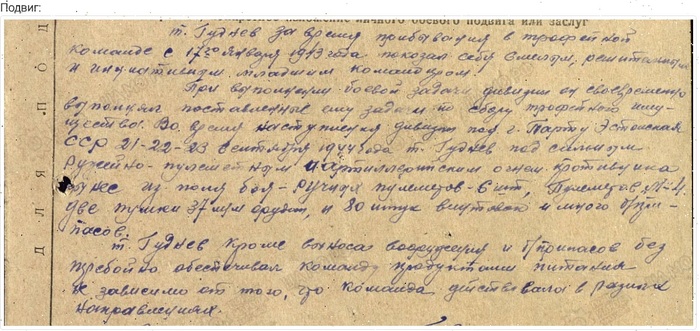 Подвиг:
изложение личного боевого подвига или заслуг
т. Гуднев за время прибывания в трофейной
команде с 17го января 1943 года показал себя смелым, решительным
и инициативным младшим командиром.
При выполнении боевой задачи дивизии он своевременно
выполнял поставленные ему задачи по сбору трофейного иму-
щества. Во время наступления дивизии под г. Тарту Эстонская
ССР 21-22-23 сентября 1944 года т. Гуднев под сильным
ружейно-пулеметным и артиллерийским огнем противника
вынес из поля боя - ручных пулеметов - 6 шт, Пулеметов - 4.
две пушки 37 мм и 80 штук винтовок и много б/при-
пасов.
т. Гуднев кроме выноса вооружения и б/припасов без
пребойно обеспечивал команду продуктами питания
не зависимо от того, что команда действовала в разных
направлениях.
ДЛЯ ПОД